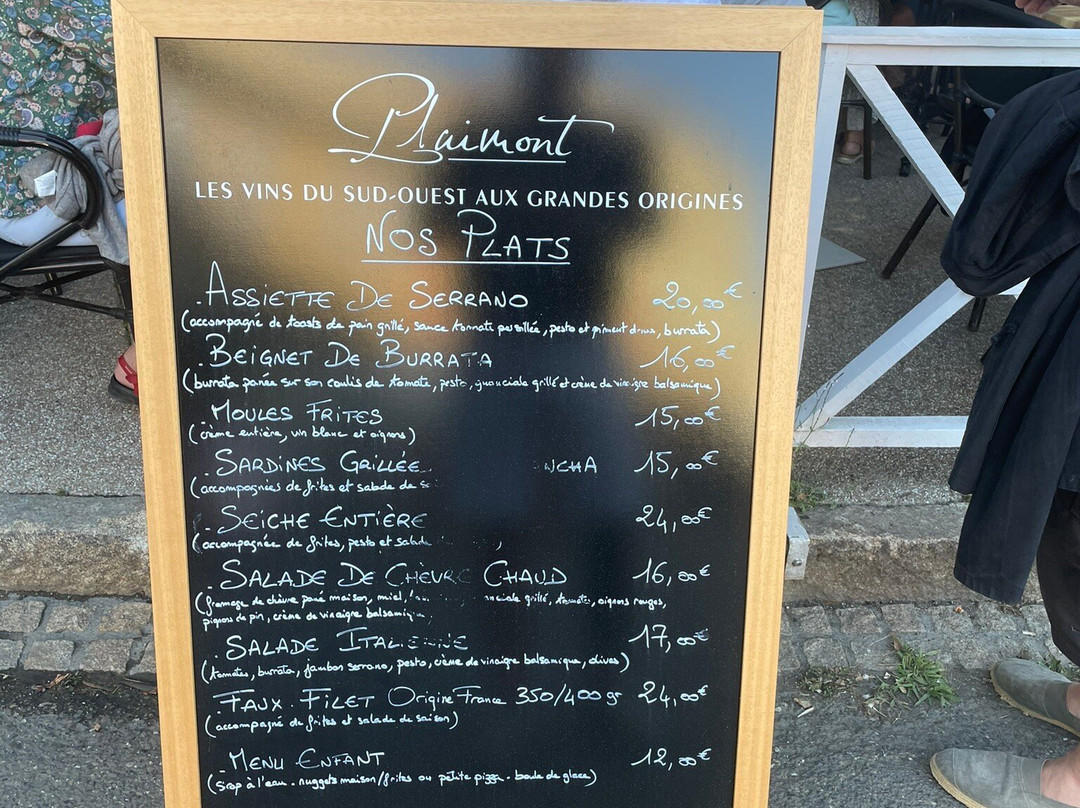 Plaimont
LES VINS DU SUD-OUEST AUX GRANDES ORIGINES
NOS PLATS
. ASSIETTE DE SERRANO 20,00€
(accompagné de toasts de pain grillé, sauce tomate persillée, pesto et piment doux, burrata)
. BEIGNET DE BURRATA 16,00€
(burrata panée sur son coulis de tomate, pesto, guanciale grillé et crème de vinaigre balsamique)
. MOULES FRITES 15,00€
(crème entière, vin blanc et oignons)
. SARDINES GRILLÉE 15,00€
(accompagnées de frites et salade de
. SEICHE ENTIÈRE 24,00€
(accompagnée de frites, pesto et salade
. SALADE DE CHÈVRE CHAUD 16,00€
(fromage de chèvre pané maison, miel, grillé, tomates, oignons rouges,
pignons de pin, crème de vinaigre balsamique,
. SALADE ITALIENNE 17,00€
(tomates, burrata, jambon serrano, pesto, crème de vinaigre balsamique, olives)
. FAUX-FILET Origine France 350/400 gr 24,00€
(accompagné de frites et salade de saison)
. MENU ENFANT 12,00€
(Sirop à l'eau - nuggets maison/frites ou petite pizza - boule de glace)